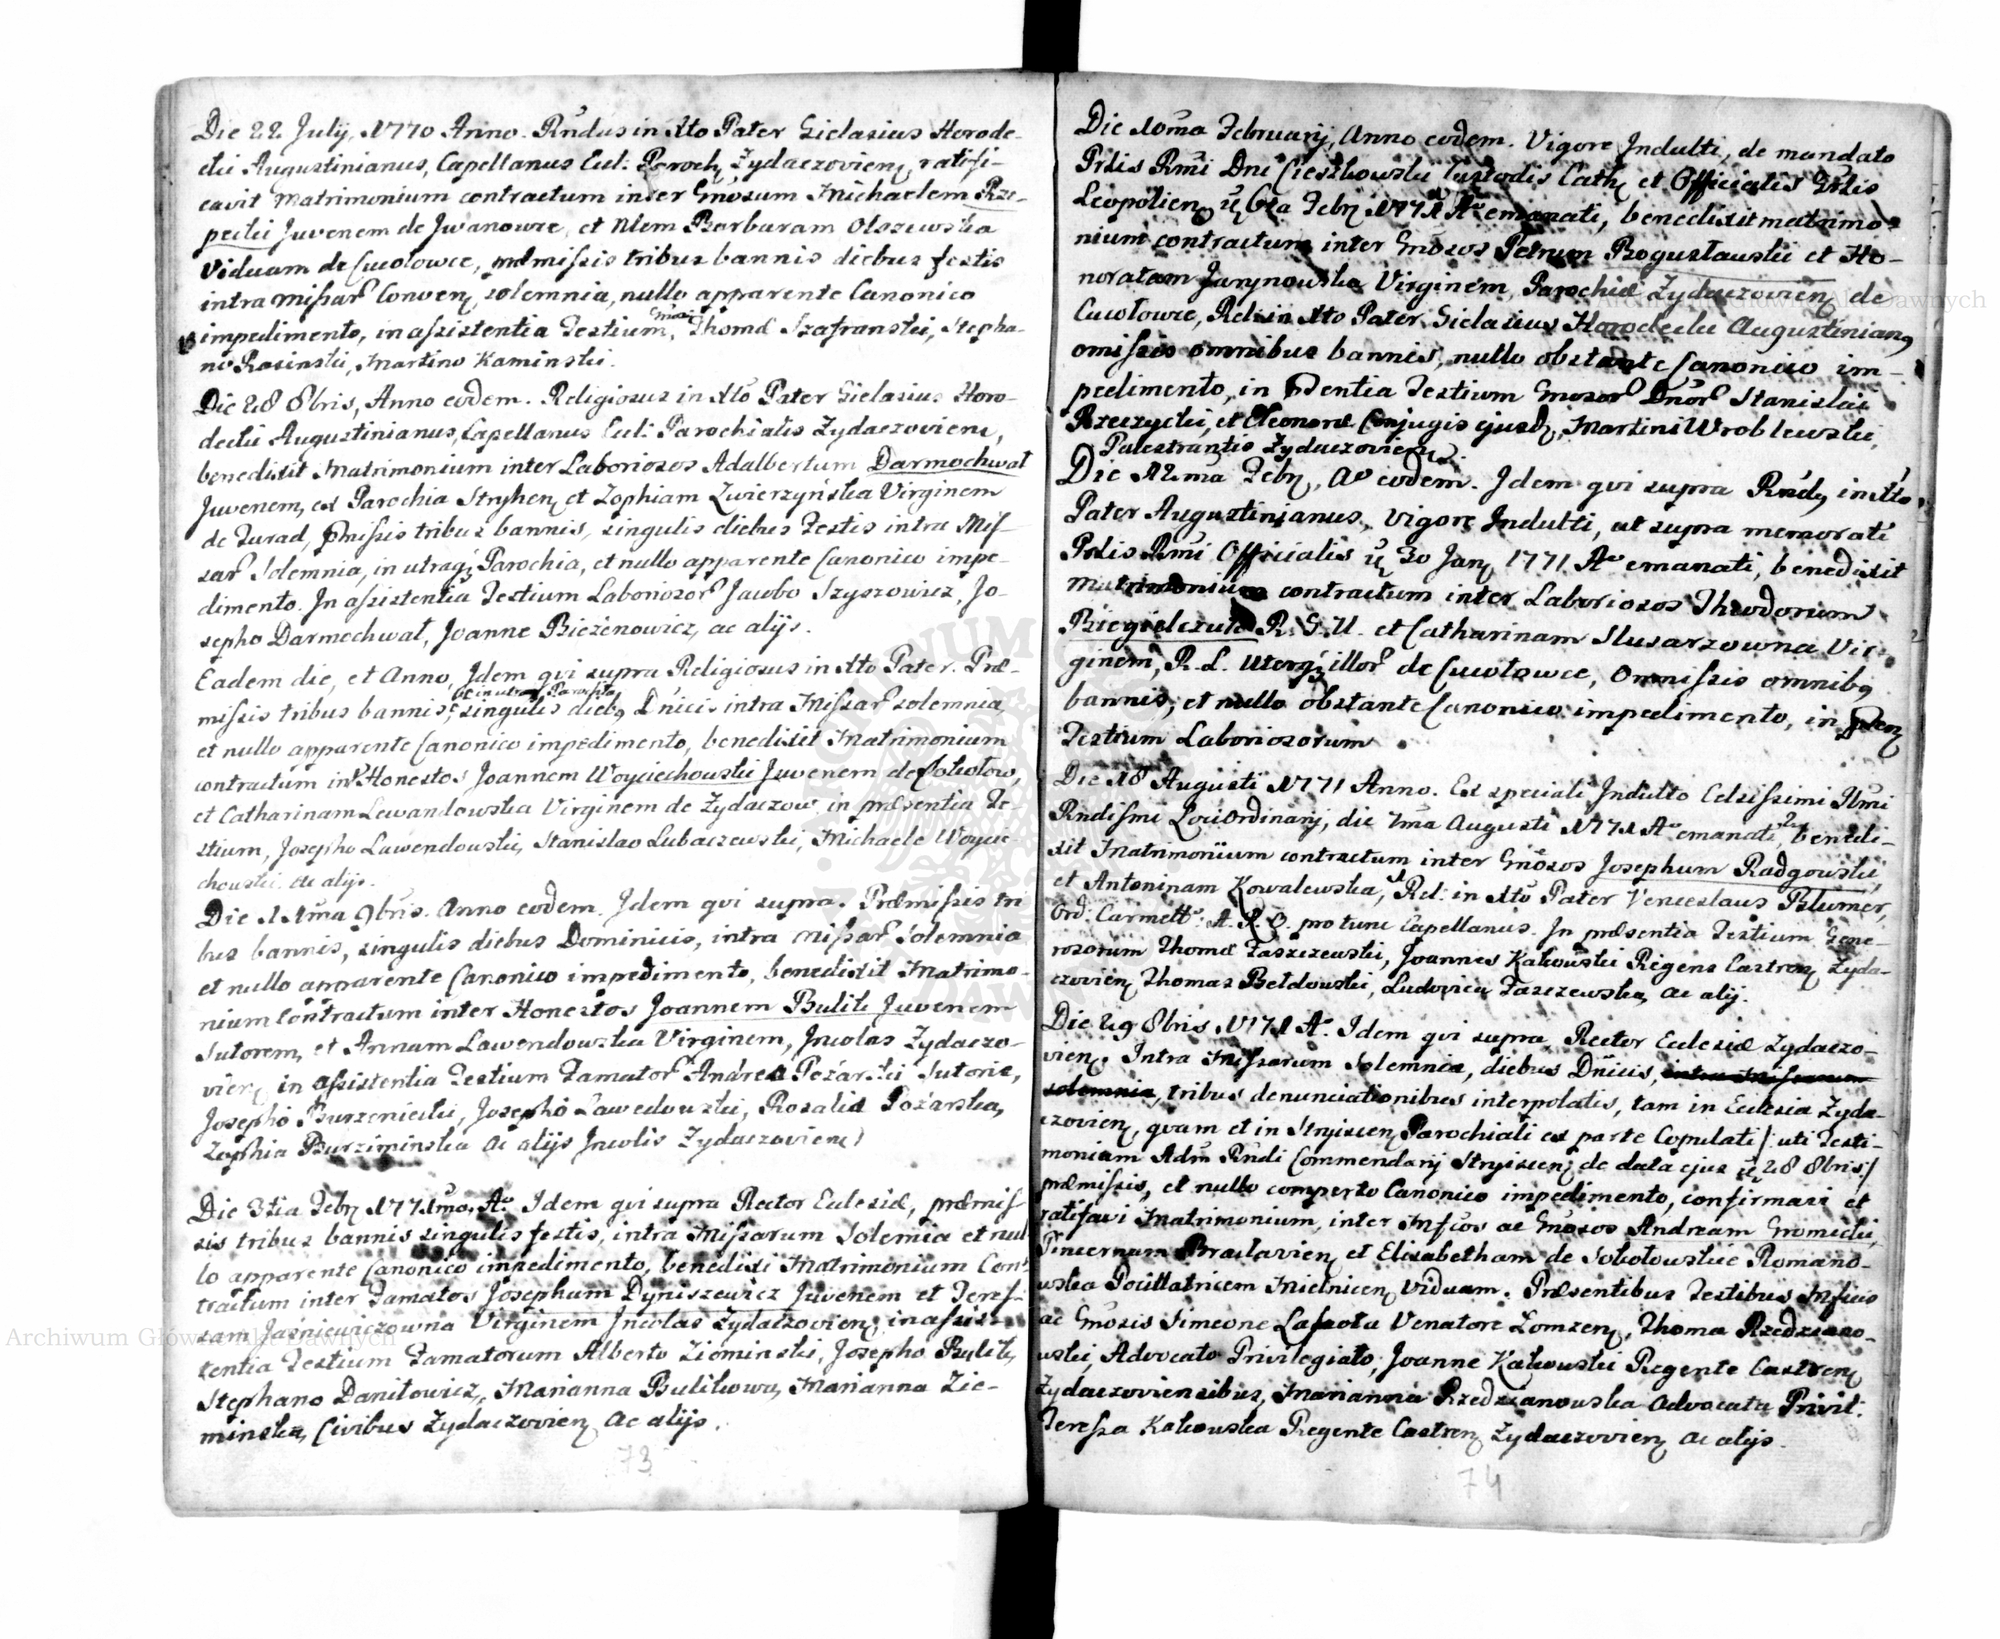 Die 22 July, 1770 Anno. Rndus in Xto Pater Gielasius Horode-
cki Augustinianus, Capellanus Eccl: Paroch Zydaczovien, ratifi-
cavit Matrimonium contractum inter Gnosum Michaelem Rze-
pecki Juvenem de Jwanowce, et Nlem Barbaram Olszewska
Viduam de Cucolowce, præmissis tribus bannis diebus festis
intra Missar Conven solemnia, nullo apparente Canonico
impedimento, in assistentia Testium, Thomæ Szafranski, Stepha-
no Rosinski, Martino Kaminski.
Die 28 8bris, Anno eodem. Religiosus in Xto Pater Gielasius Horo-
decki Augustinianus, Capellanus Eccl: Parochialis Zydaczovien,
benedixit Matrimonium inter Laboriosos Adalbertum Darmochwał
Juvenem, ex Parochia Stryhen, et Zophiam Zwierzyńska Virginem
de Turad, pmissis tribus bannis, singulis diebus Festis intra Mis-
sar Solemnia, in utraq Parochia, et nullo apparente Canonico impe-
dimento. In assistentia Testium Laboriosor Jacobo Szyszowicz, Jo-
sepho Darmochwał, Joanne Bieżenowicz, ac alijs.
Eadem die, et Anno, Jdem qvi supra Religiosus in Xto Pater. Præ-
et in utraq Parochia
missis tribus bannis, singulis dieb Dnicis intra Missar solemnia,
et nullo apparente Canonico impedimento, benedixit Matrimonium
contractum int Honestos Joannem Woyciechowski Juvenem de Sokołow,
et Catharinam Lewandowska Virginem de Zydaczow in præsentia Te-
stium, Josepho Lawendowski, Stanislao Lubaczewski, Michaele Woycie-
chowski ac alijs.
Die 11ma 9bris. Anno eodem. Jdem qvi supra. Præmissis tri
bus bannis, singulis diebus Dominicis, intra Missar Solemnia
et nullo apparente Canonico impedimento, benedixit Matrimo-
nium Contractum inter Honestos Joannem Bulik Juvenem
Sutorem, et Annam Lawendowska Virginem, Jncolas Zydaczo-
vien, in assistentia Testium Famator Andrea Pożarski Sutoris,
Josepho Burzeniecki, Josepho Lawedowski, Rosalia Pożarska,
Zophia Burziminska ac alijs Jncolis Zydaczovien
Die 3tia Febr 1771mo, Ao Idem qvi supra Rector Eclesiæ, præmis-
sis tribus bannis singulis festis, intra Missarum Solemia et nul
lo apparente Canonico impedimento, benedixi Matrimonium Con-
tractum inter Famatos Josephum Dyniszewicz Juvenem et Teres-
sam Jaśniewiczowna Virginem Jncolas Zydaczovien, in assis-
tentia Testium Famatorum Alberto Ziominski, Josepho Bulik,
Stephano Daniłowicz, Marianna Bulikowa, Marianna Zie-
minska, Civibus Zydaczovien ac alijs.
73
Die 10ma Februarij, Anno eodem. Vigore Jndulti, de mandato
Prlis Rmi Dni Cieszkowski Custodis Cath et Officialis Grlis
Leopolien, 6ta Febr 1771 Ao emanati, benedixit matrimo-
nium contractum inter Gnosos Petrum Bogusławski et Ho-
noratam Jurynowska Virginem, Parochiæ Zydaczovien de
Cucolowce, Rel: in Xto Pater Gielasius Horodecki Augustinian
omissis omnibus bannis, nullo obstante Canonico im-
pedimento, in pdentia Testium Gnosor Dnor Stanislai
Rzeczycki, et Eleonoræ Conjugis ejusd, Martini Wroblewski,
Palestrantis Zydaczovien.
Die 12ma Febr, Ao eodem. Jdem qvi supra Rnd in Xto
Pater Augustinianus, vigore Jndulti, ut supra memorati
Prlis Rmi Officialis 30 Jan 1771 Ao emanati, benedixit
Matrimonium contractum inter Laboriosos Theodorum
Biegielczuk R. G. U. et Catharinam Slusarzowna Vir-
ginem, R. L. Uterq illor de Cucołowce, Omissis omnib
bannis, et nullo obstante Canonico impedimento, in pden
Testium Laboriosorum
Die 18 Augusti 1771 Anno. Ex speciali Jndulto Celsissimi Jllmi
Rndissmi Loci Ordinarij, die 7ma Augusti 1771 Ao emanati, benedi-
xit Matrimonium contractum inter Gnosos Josephum Radgowski,
et Antoninam Kowalewska, Rel: in Xto Pater Venceslaus Blumer,
Ord: Carmelt: A. R. O. pro tunc Capellanus. In præsentia Testium Gene-
rosorum Thomæ Taszczewski, Joannes Kakowski Regens Castren Zyda-
czovien, Thomas Bełdowski, Ludovica Taszczewska, ac alij.
Die 29 8bris 1771 Ao. Idem qvi supra Rector Eclesiæ Zydaczo-
vien. Intra Missarum Solemnia, diebus Dnicis, intra Missarum
solemnia, tribus denunciationibus interpolatis, tam in Eclesia Zyda-
czovien, qvam et in Stryiscen Parochiali ex parte Copulati /: uti Testi-
monium Adm Rndi Commendarij Stryiscen, de data ejus 28 8bris:/
præmissis, et nullo comperto Canonico impedimento, confirmavi et
ratifavi Matrimonium, inter Mfcos ac Gnosos Andream Gromicki,
Pincernam Braclavien, et Elisabetham de Sokołowskie Romano-
wska Pocillatricem Mielnicen, Viduam. Præsentibus Testibus Mficis
ac Gnosis Simeone Lassota Venatore Łomzen, Thoma Rzedziano-
wski, Advocato Privilegiato, Joanne Kakowski Regente Castren
Zydaczoviensibus, Marianna Rzedzianowska Advocata Privil:
Teressa Kakowska Regente Castren Zydaczovien ac alijs.
74
Archiwum Główne Akt Dawnych
Archiwum Główne Akt Dawnych